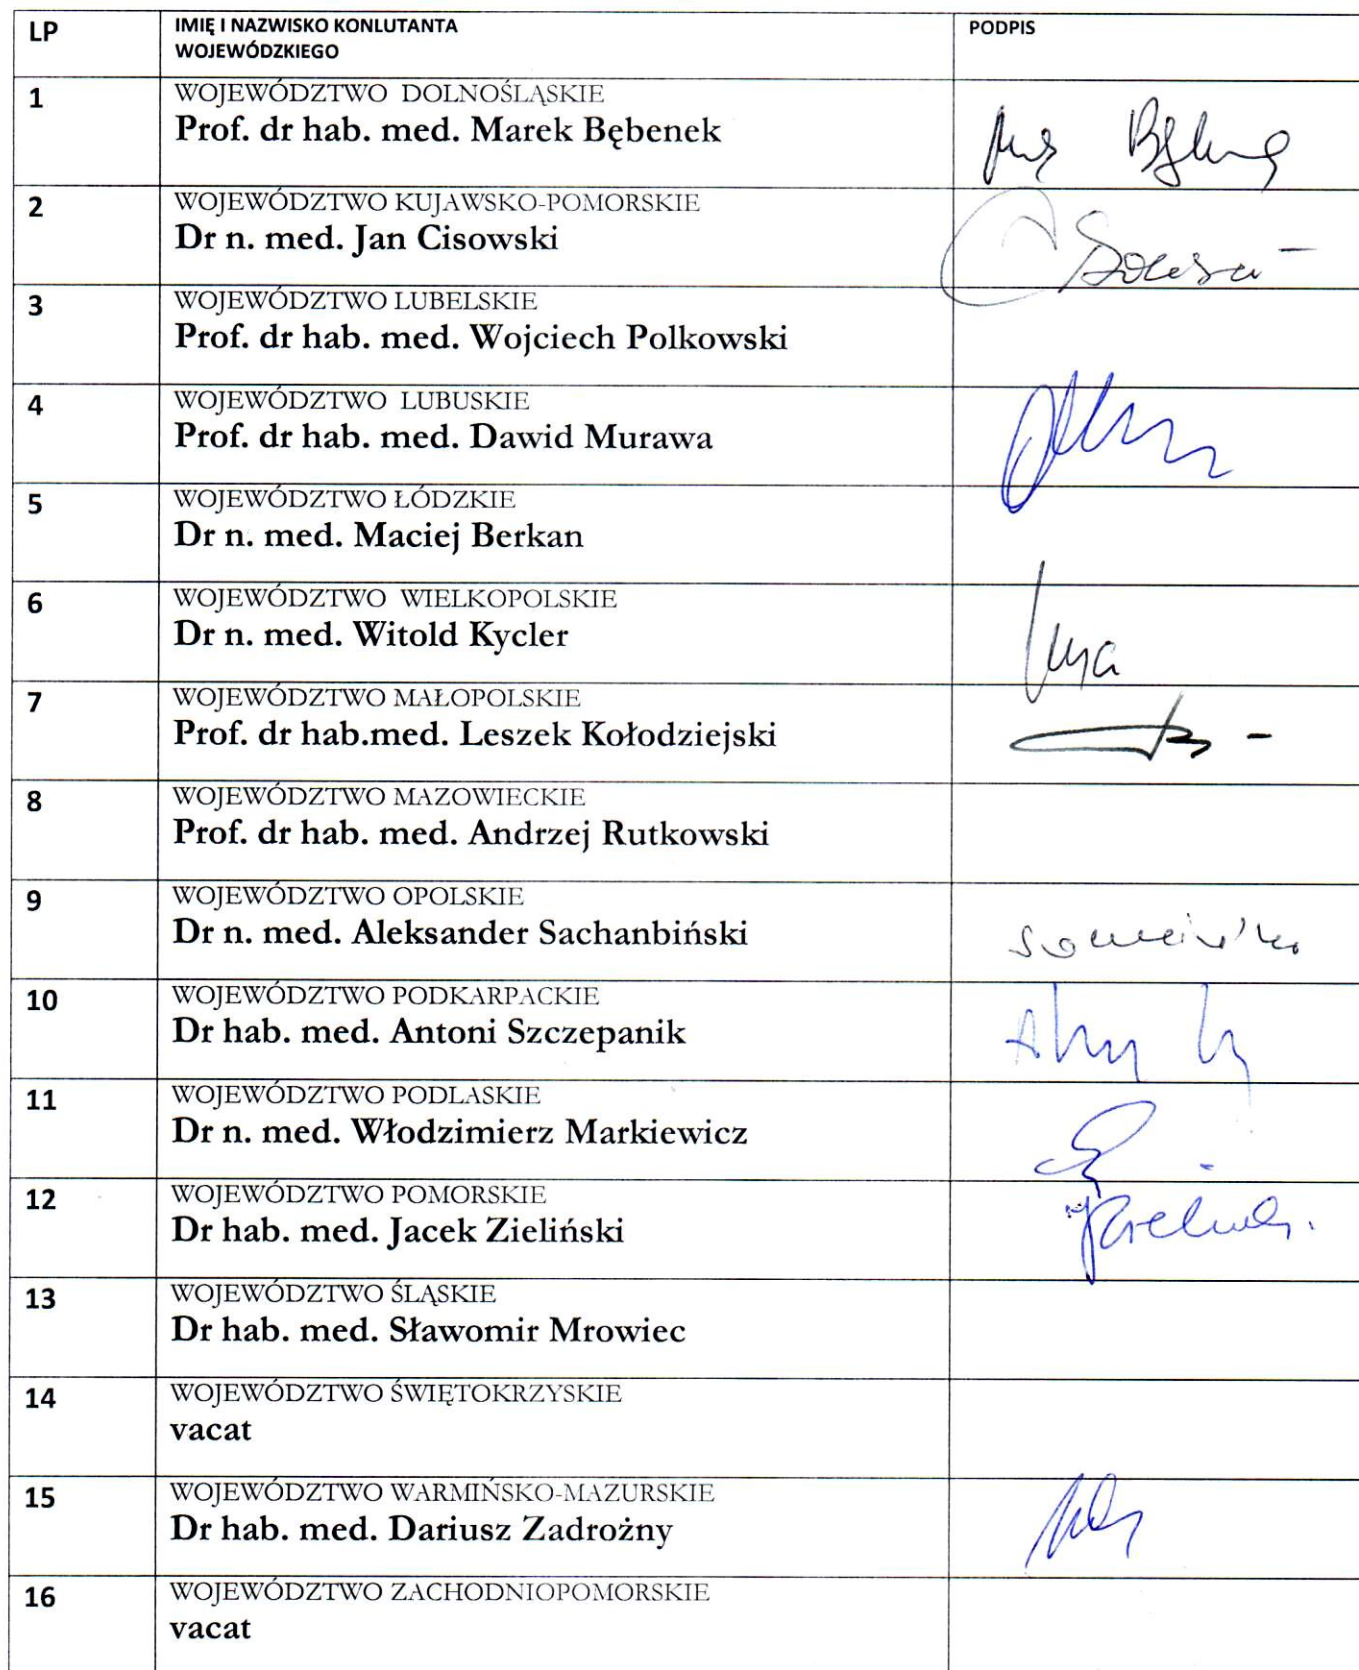 LP IMIĘ I NAZWISKO KONLUTANTA PODPIS
WOJEWÓDZKIEGO
1 WOJEWÓDZTWO DOLNOŚLĄSKIE
Prof. dr hab. med. Marek Bębenek
2 WOJEWÓDZTWO KUJAWSKO-POMORSKIE
Dr n. med. Jan Cisowski
3 WOJEWÓDZTWO LUBELSKIE
Prof. dr hab. med. Wojciech Polkowski
4 WOJEWÓDZTWO LUBUSKIE
Prof. dr hab. med. Dawid Murawa
5 WOJEWÓDZTWO ŁÓDZKIE
Dr n. med. Maciej Berkan
6 WOJEWÓDZTWO WIELKOPOLSKIE
Dr n. med. Witold Kycler
7 WOJEWÓDZTWO MAŁOPOLSKIE
Prof. dr hab.med. Leszek Kołodziejski
8 WOJEWÓDZTWO MAZOWIECKIE
Prof. dr hab. med. Andrzej Rutkowski
9 WOJEWÓDZTWO OPOLSKIE
Dr n. med. Aleksander Sachanbiński
10 WOJEWÓDZTWO PODKARPACKIE
Dr hab. med. Antoni Szczepanik
11 WOJEWÓDZTWO PODLASKIE
Dr n. med. Włodzimierz Markiewicz
12 WOJEWÓDZTWO POMORSKIE
Dr hab. med. Jacek Zieliński
13 WOJEWÓDZTWO ŚLĄSKIE
Dr hab. med. Sławomir Mrowiec
14 WOJEWÓDZTWO ŚWIĘTOKRZYSKIE
vacat
15 WOJEWÓDZTWO WARMIŃSKO-MAZURSKIE
Dr hab. med. Dariusz Zadrożny
16 WOJEWÓDZTWO ZACHODNIOPOMORSKIE
vacat